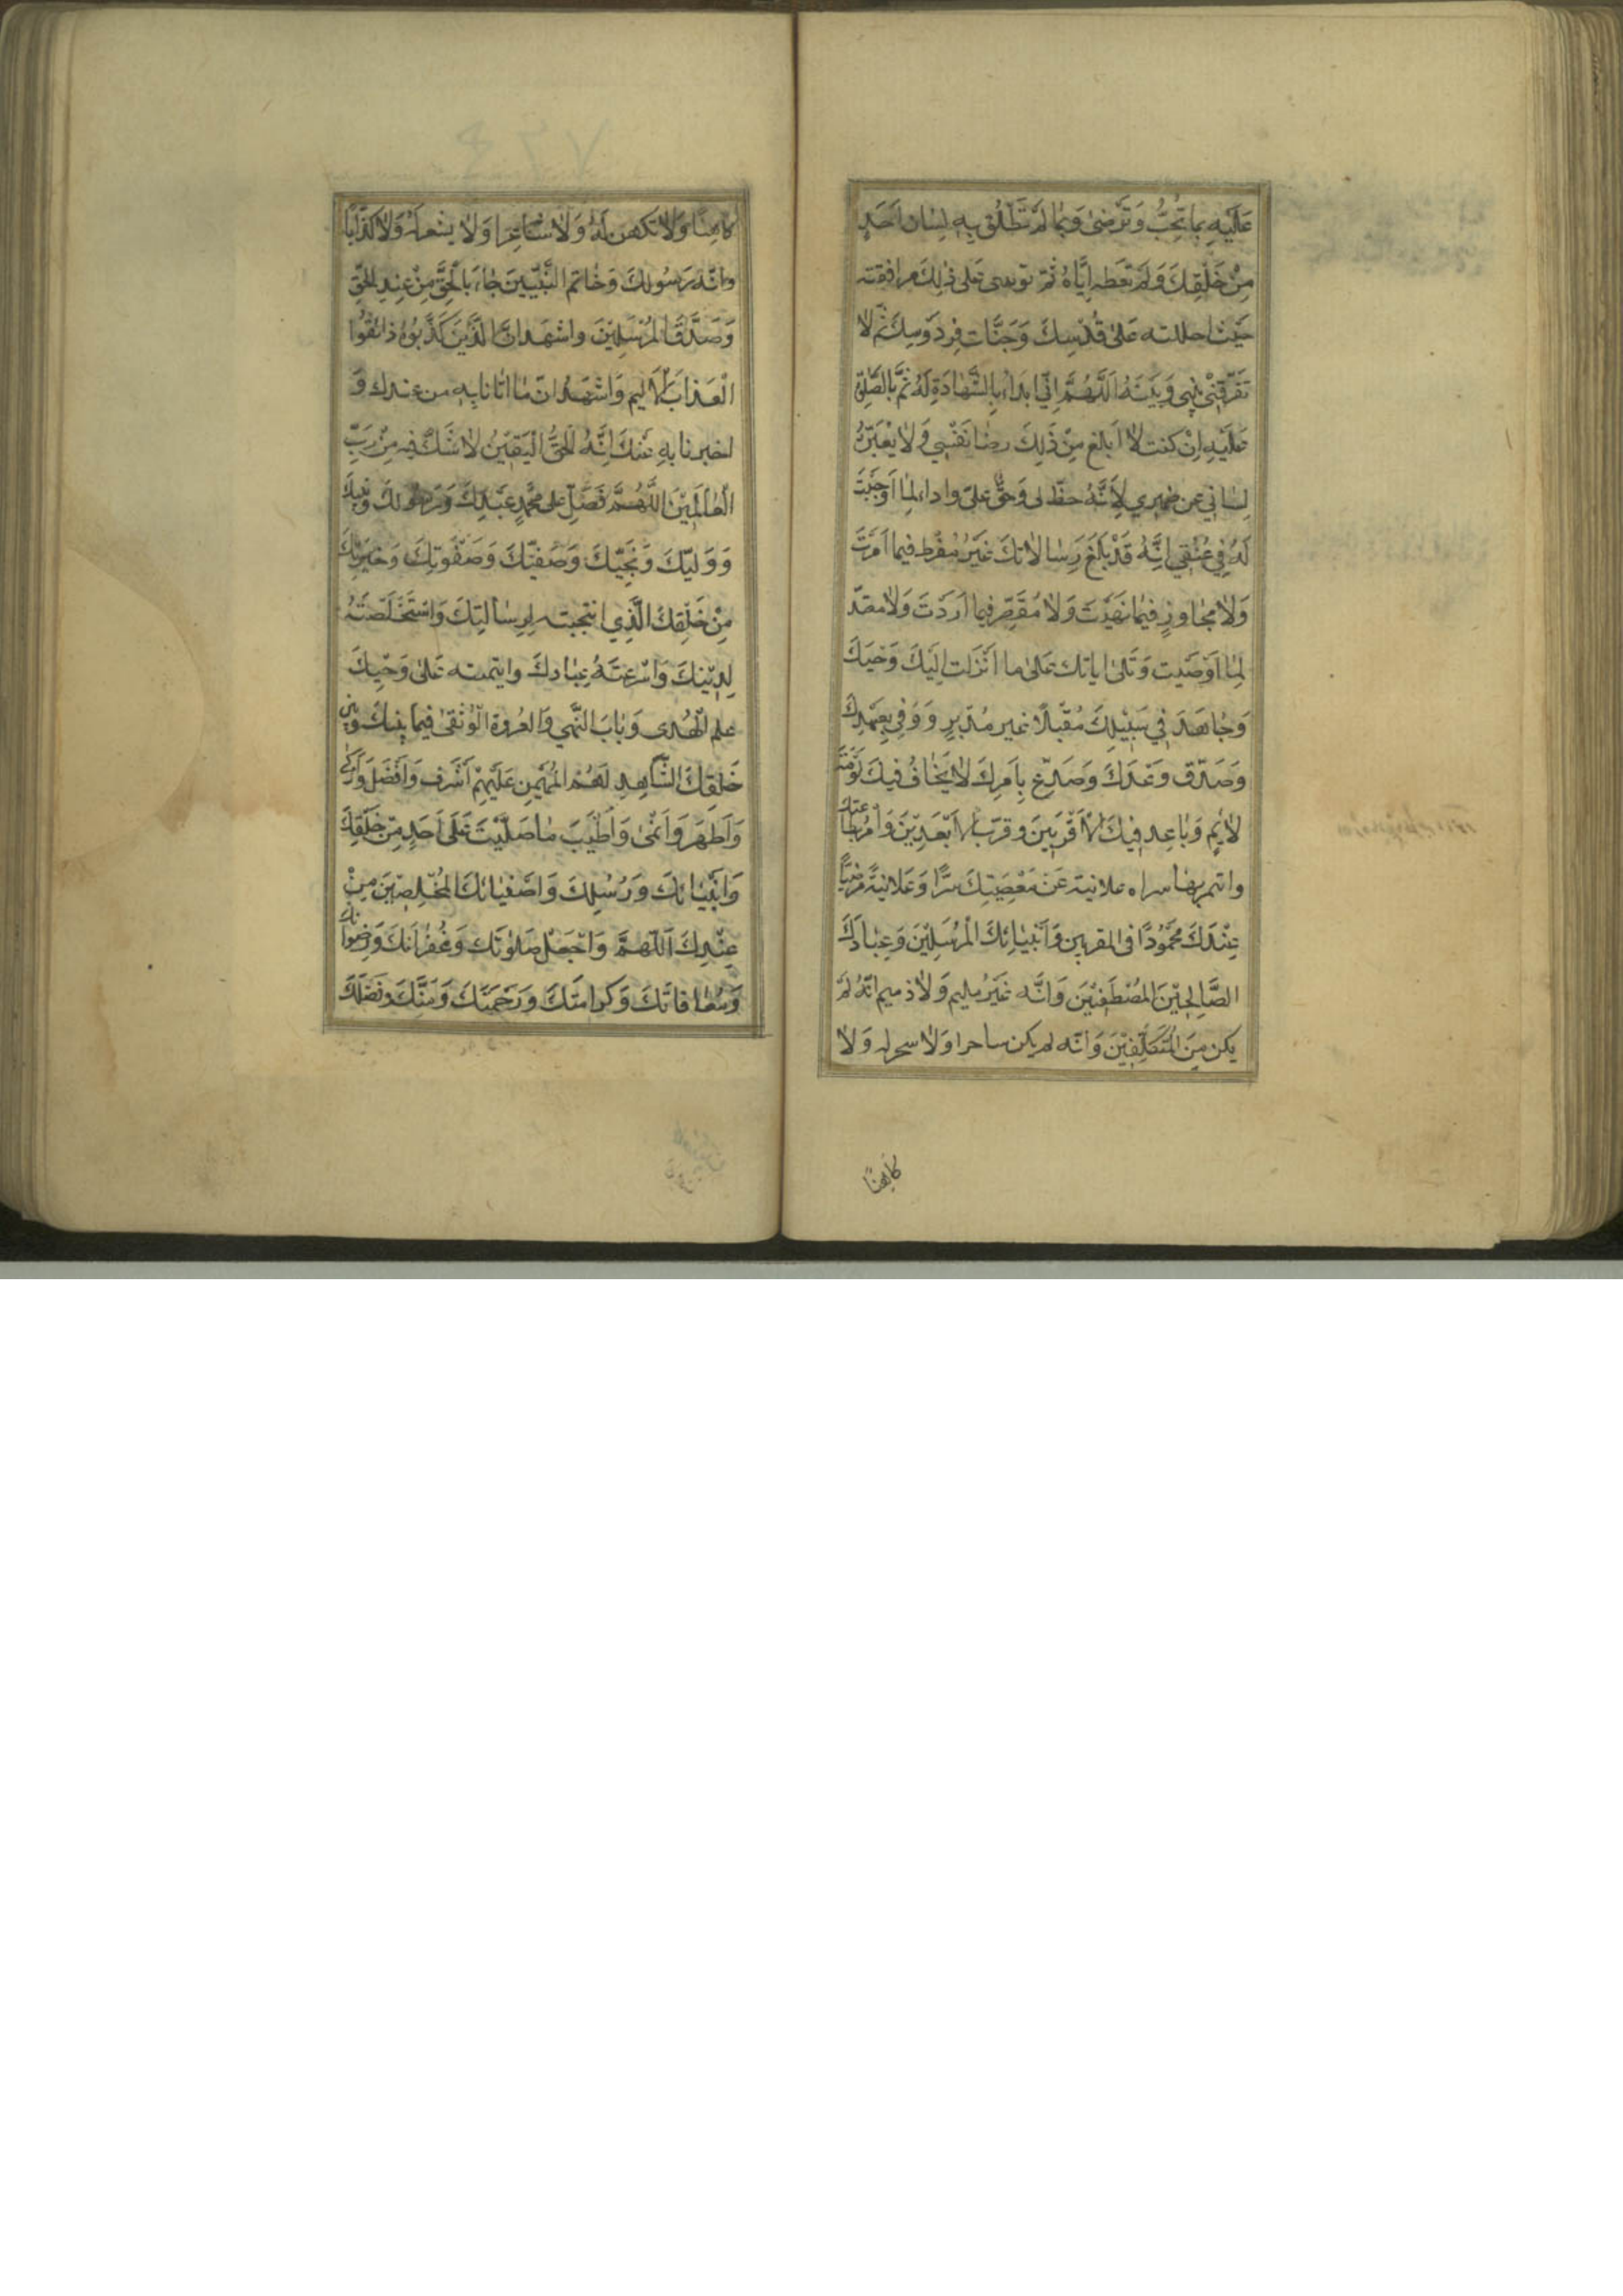 عَلَيْهِ بِمَا تُحِبُّ وَتَرْضىٰ وَبِمٰا لَمْ تَنْطَلُق بِهِ لِسٰان اَحَدٍ
مِنْ خَلْقِكَ وَلَمْ تعَطه اِيَّاهُ ثُمَّ تؤتى عَلى ذٰلِكَ مرافقته
حَيْثُ احللته عَلىٰ قُدْسِكَ وَجَنَّات فِردَوْسِكَ ثُمَّ لاٰ
تَفَرَّقْ بَيْنِي وَبَيْنَهُ اَللّٰهُمَّ اِنِّي ابَدَاءُ بِالشَّهٰادَةِ لَهُ ثُمَّ بِالصَّلٰوةِ
عَلَيْهِ اِنْ كنت لاٰ اَبلغ مِنْ ذَلِكَ رضٰا نَفْسِي وَلاٰ يعَبّرُ
لِسٰانِي عن ضميري لِاَنَّهُ حظّ لى وَحقٌّ علىّ واداء لِمٰا اَوْجَبْتَ
لَهُ فِي عُنُقِي اِنَّهُ قَدْ بَلَّغَ رِسٰالاٰتكَ غَيْرَ مُفْرِط فيمٰا اَمَرْتَ
وَلاٰ مجٰاوزٍ فيمٰا نَهَيْتَ وَلاٰ مُقَصِّرٍ فيما اَرَدْتَ وَلاٰ متعدّ
لِمٰا اَوْصَيْت وَتَلىٰ اياتك عَلىٰ ما اَنْزَلت اِلَيْكَ وَحْيَكَ
وَجٰاهَدَ فِي سَبِيْلِكَ مُقْبِلًا غير مُدْبِرٍ وَوَفِي بِعَهْدِكَ
وَصَدّق وَعْدَكَ وَصَدَعَ بِاَمْرِكَ لاٰ يَخٰافُ فيكَ لَوْمَةَ
لاٰئِمٍ وَبٰاعد فيكَ الاَقْرَبِينَ وقَرّبَ الاَبْعَدِيْنَ وَامر بطاعتك
وائتمر بهٰا سرا وعلانية عَنْ مَعْصِيَتِكَ سرًّا وَعَلاٰنيةً مَرْضِيًّا
عِنْدَكَ مَحْمُوْدًا فى المقربين وَاَنْبِيٰائِكَ الْمُرْسَلِيْنَ وَعِبٰادِكَ
الصَّالِحِيْنَ المُصْطَفَيْنَ وَانَّه غَيْرُ مليم وَلاٰ ذميم انّهُ لَمْ
يكن مِنَ المُتَكَلِّفِيْنَ وَانّه لم يكن ساحرا وَلاٰ سحر له وَلاٰ
كاهِنًا
كاهِنًا وَلاٰ تكهن لَهُ وَلاٰ شٰاعِرا وَلاٰ شعر لَهُ وَلاٰ كذّابًا
وانّه رَسُولكَ وَخٰاتم النَّبِيّينَ جٰاءَ بِالْحَقِّ مِنْ عِنْدِ الْحَقِّ
وَصَدَّقَ الْمُرْسَلِيْنَ واشهَد انَّ الَّذِيْنَ كَذَّبُوهُ ذائقُوا
الْعَذابَ الاَليم وَاَشْهَدُ انّ مٰا اتٰانا بِهِ من عِنْدك وَ
اخبرنا بِهِ عَنْكَ اِنَّهُ الحَقُّ الْيَقِيْنُ لاٰ شَكَّ فيه مِنْ رَبِّ
الْعٰالَمِيْنَ اللّٰهُمَّ فَصَلِّ على مُحَمَّدٍ عَبْدِكَ وَرَسُولكَ وَنَبِيِّكَ
وَوَليّكَ وَنَجِيّكَ وَصَفيّكَ وَصَفْوَتِكَ وَخِيَرَتِكَ
مِنْ خَلْقِكَ الَّذِي انتجبته لِرِسٰالَتِكَ وَاسْتَخْلَصْتَهُ
لِدِيْنِكَ وَاسْتَرْعَيْتَهُ عِبٰادكَ وايتمنته عَلىٰ وَحْيِكَ
علم الْهُدى وَبٰابَ النُّهي وَالعروة الْوُثْقىٰ فيمٰا بينكَ وَبين
خَلقِكَ الشّاهِد لَهُمْ المُهَيْمن عَلَيْهِمْ اَشْرَف وَاَفْضَلَ وَاَزْكىٰ
وَاَطهَرَ وَاَنْمىٰ وَاَطْيَبَ مٰا صَلَّيْتَ عَلَى اَحَدٍ مِنْ خَلْقِكَ
وَاَنْبِيٰائكَ وَرُسُلِكَ وَاَصْفيٰائكَ المُخْلِصِيْنَ مِنْ
عِنْدِكَ اَللّٰهُمَّ وَاجْعَلْ صَلَوٰتكَ وَغُفْرٰانَكَ وَرِضْوانَكَ
وَمُعٰافاتكَ وَكرامتكَ وَرَحْمَتَكَ وَمَنَّكَ وَفَضْلَكَ